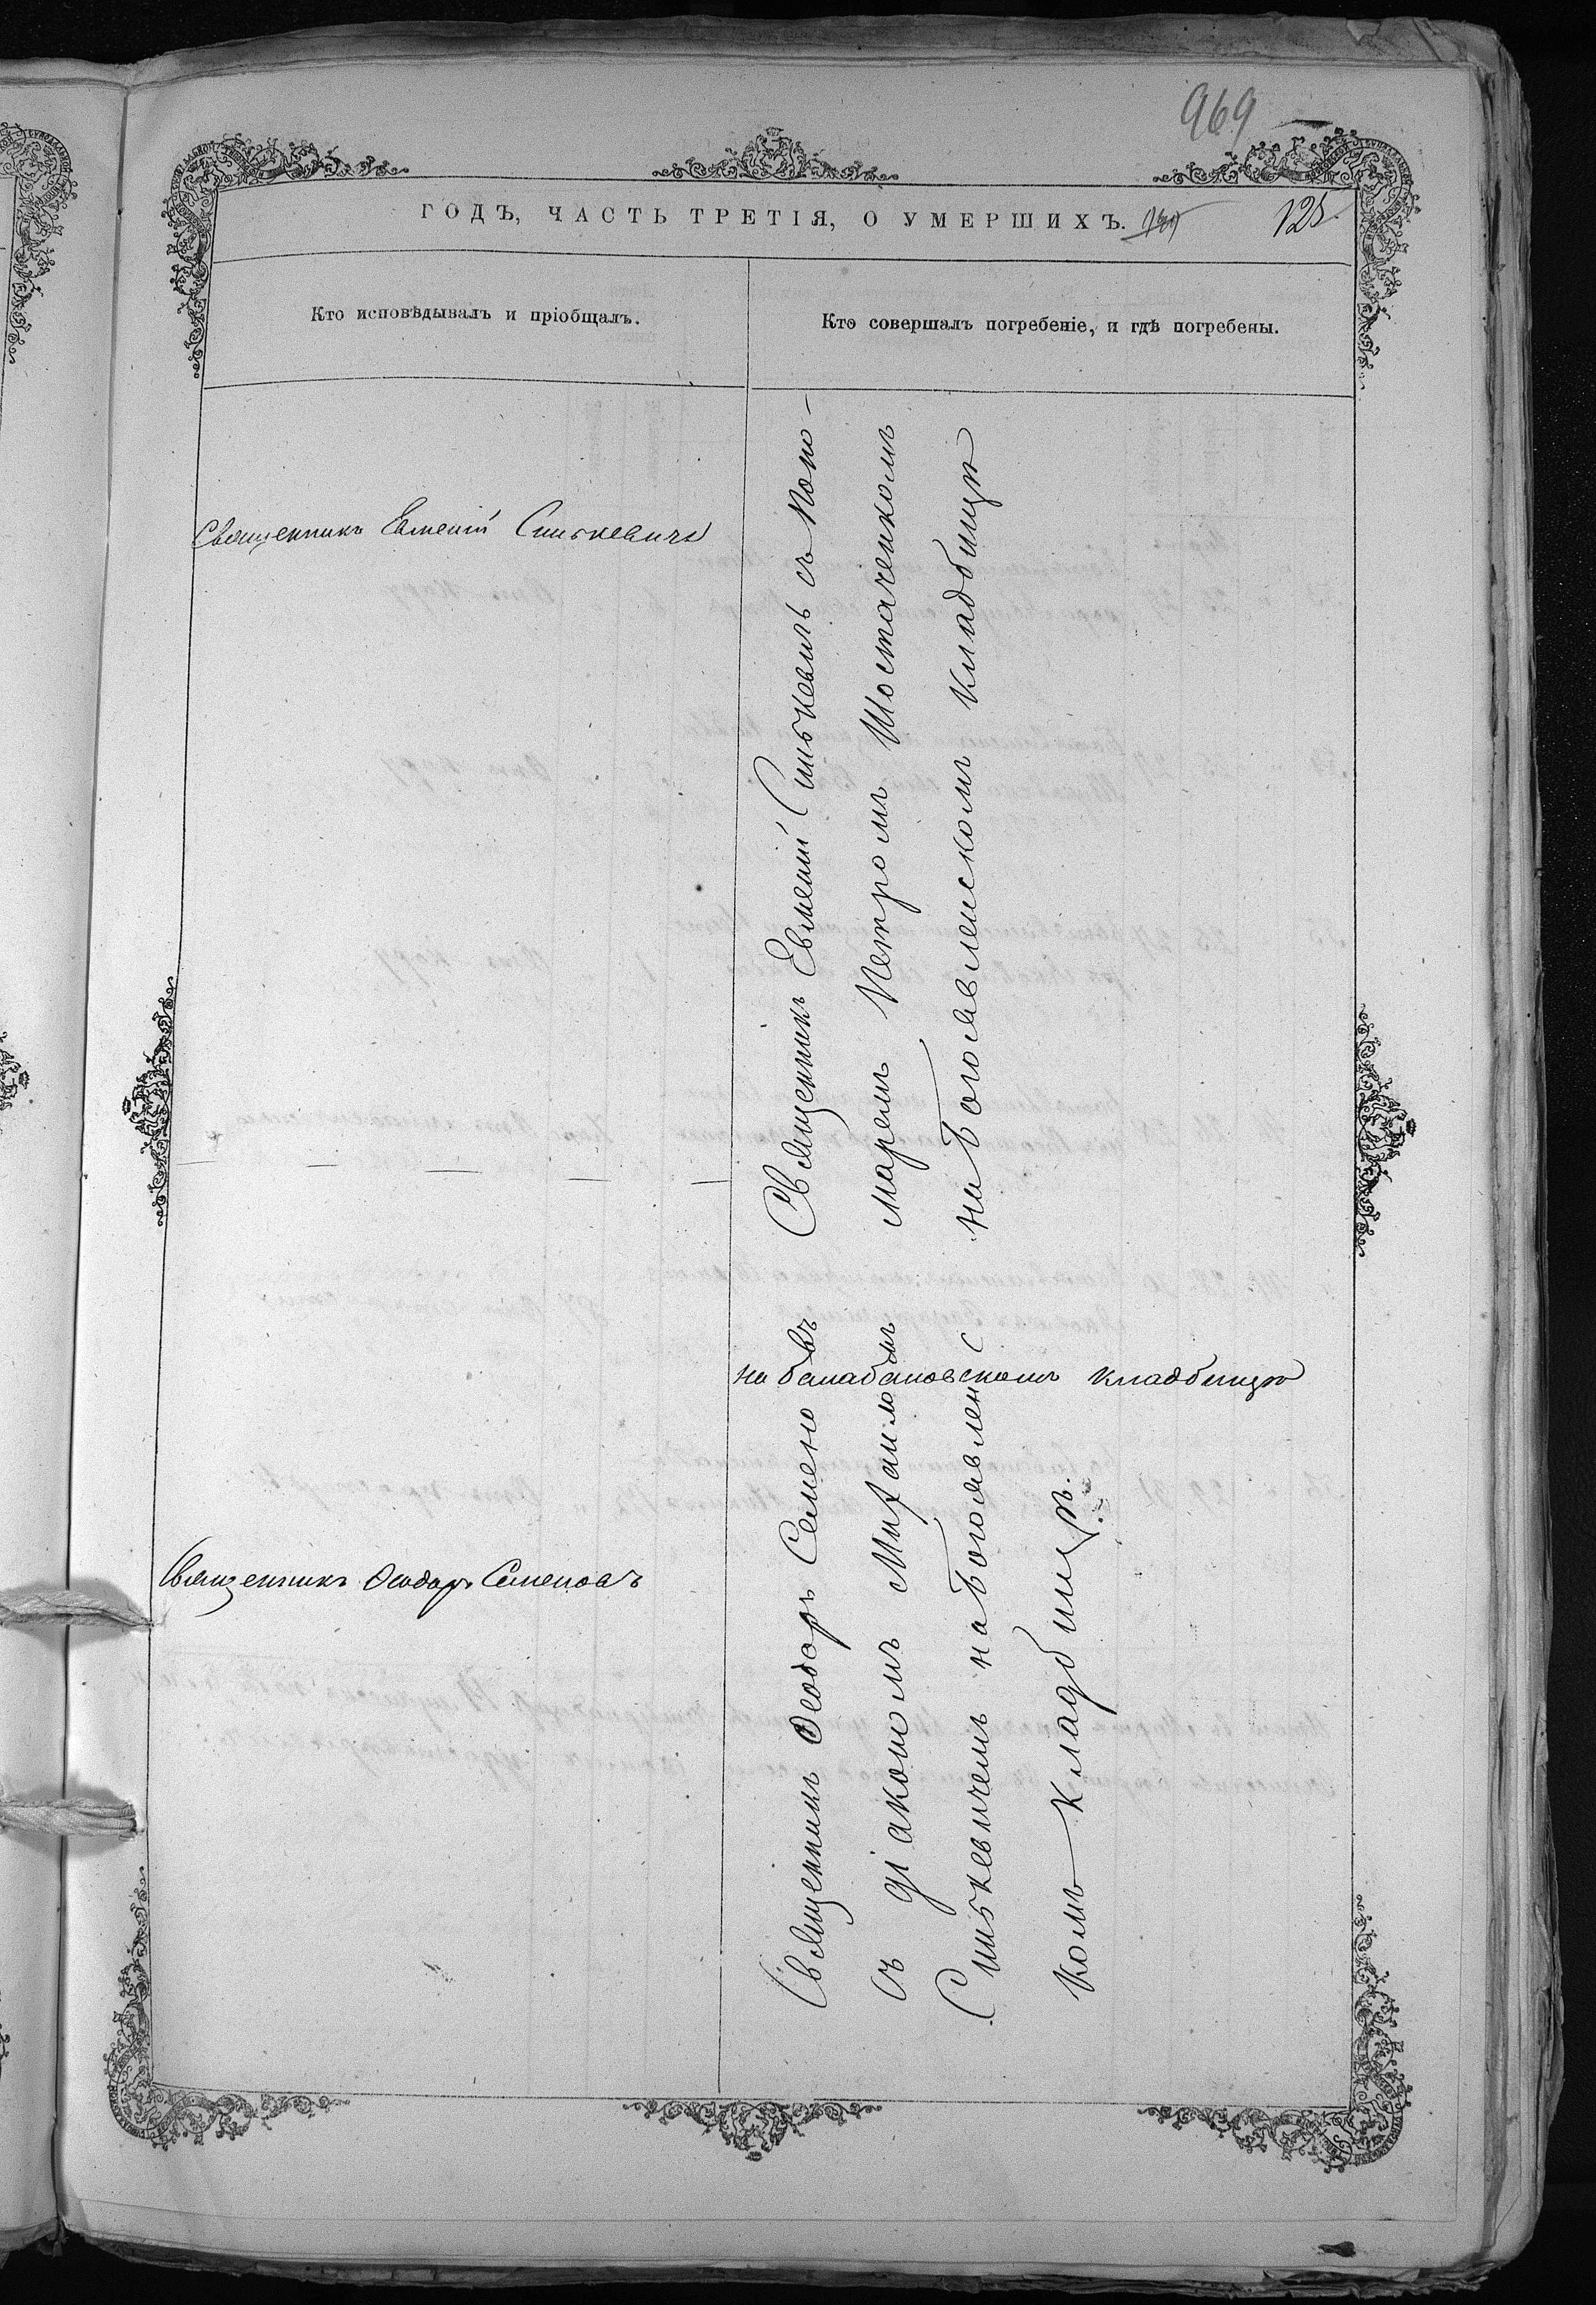 969
ГОДЪ, ЧАСТЬ ТРЕТІЯ, О УМЕРШИХЪ.
125.
Кто исповѣдывалъ и пріобщалъ.
Кто совершалъ погребеніе, и гдѣ погребены.
Священникъ Евменій Синькевичъ
Священникъ Евменій Синькевичъ съ поно-
маремъ Петромъ Шостаченкомъ
на Богоявленскомъ кладбищѣ
на балабановскомъ кладбищѣ
Священникъ Ѳеодоръ Семеновъ
Священникъ Ѳеодоръ Семеновъ
съ діакономъ Михаиломъ
Синькевичемъ на Богоявленс
комъ кладбищѣ.